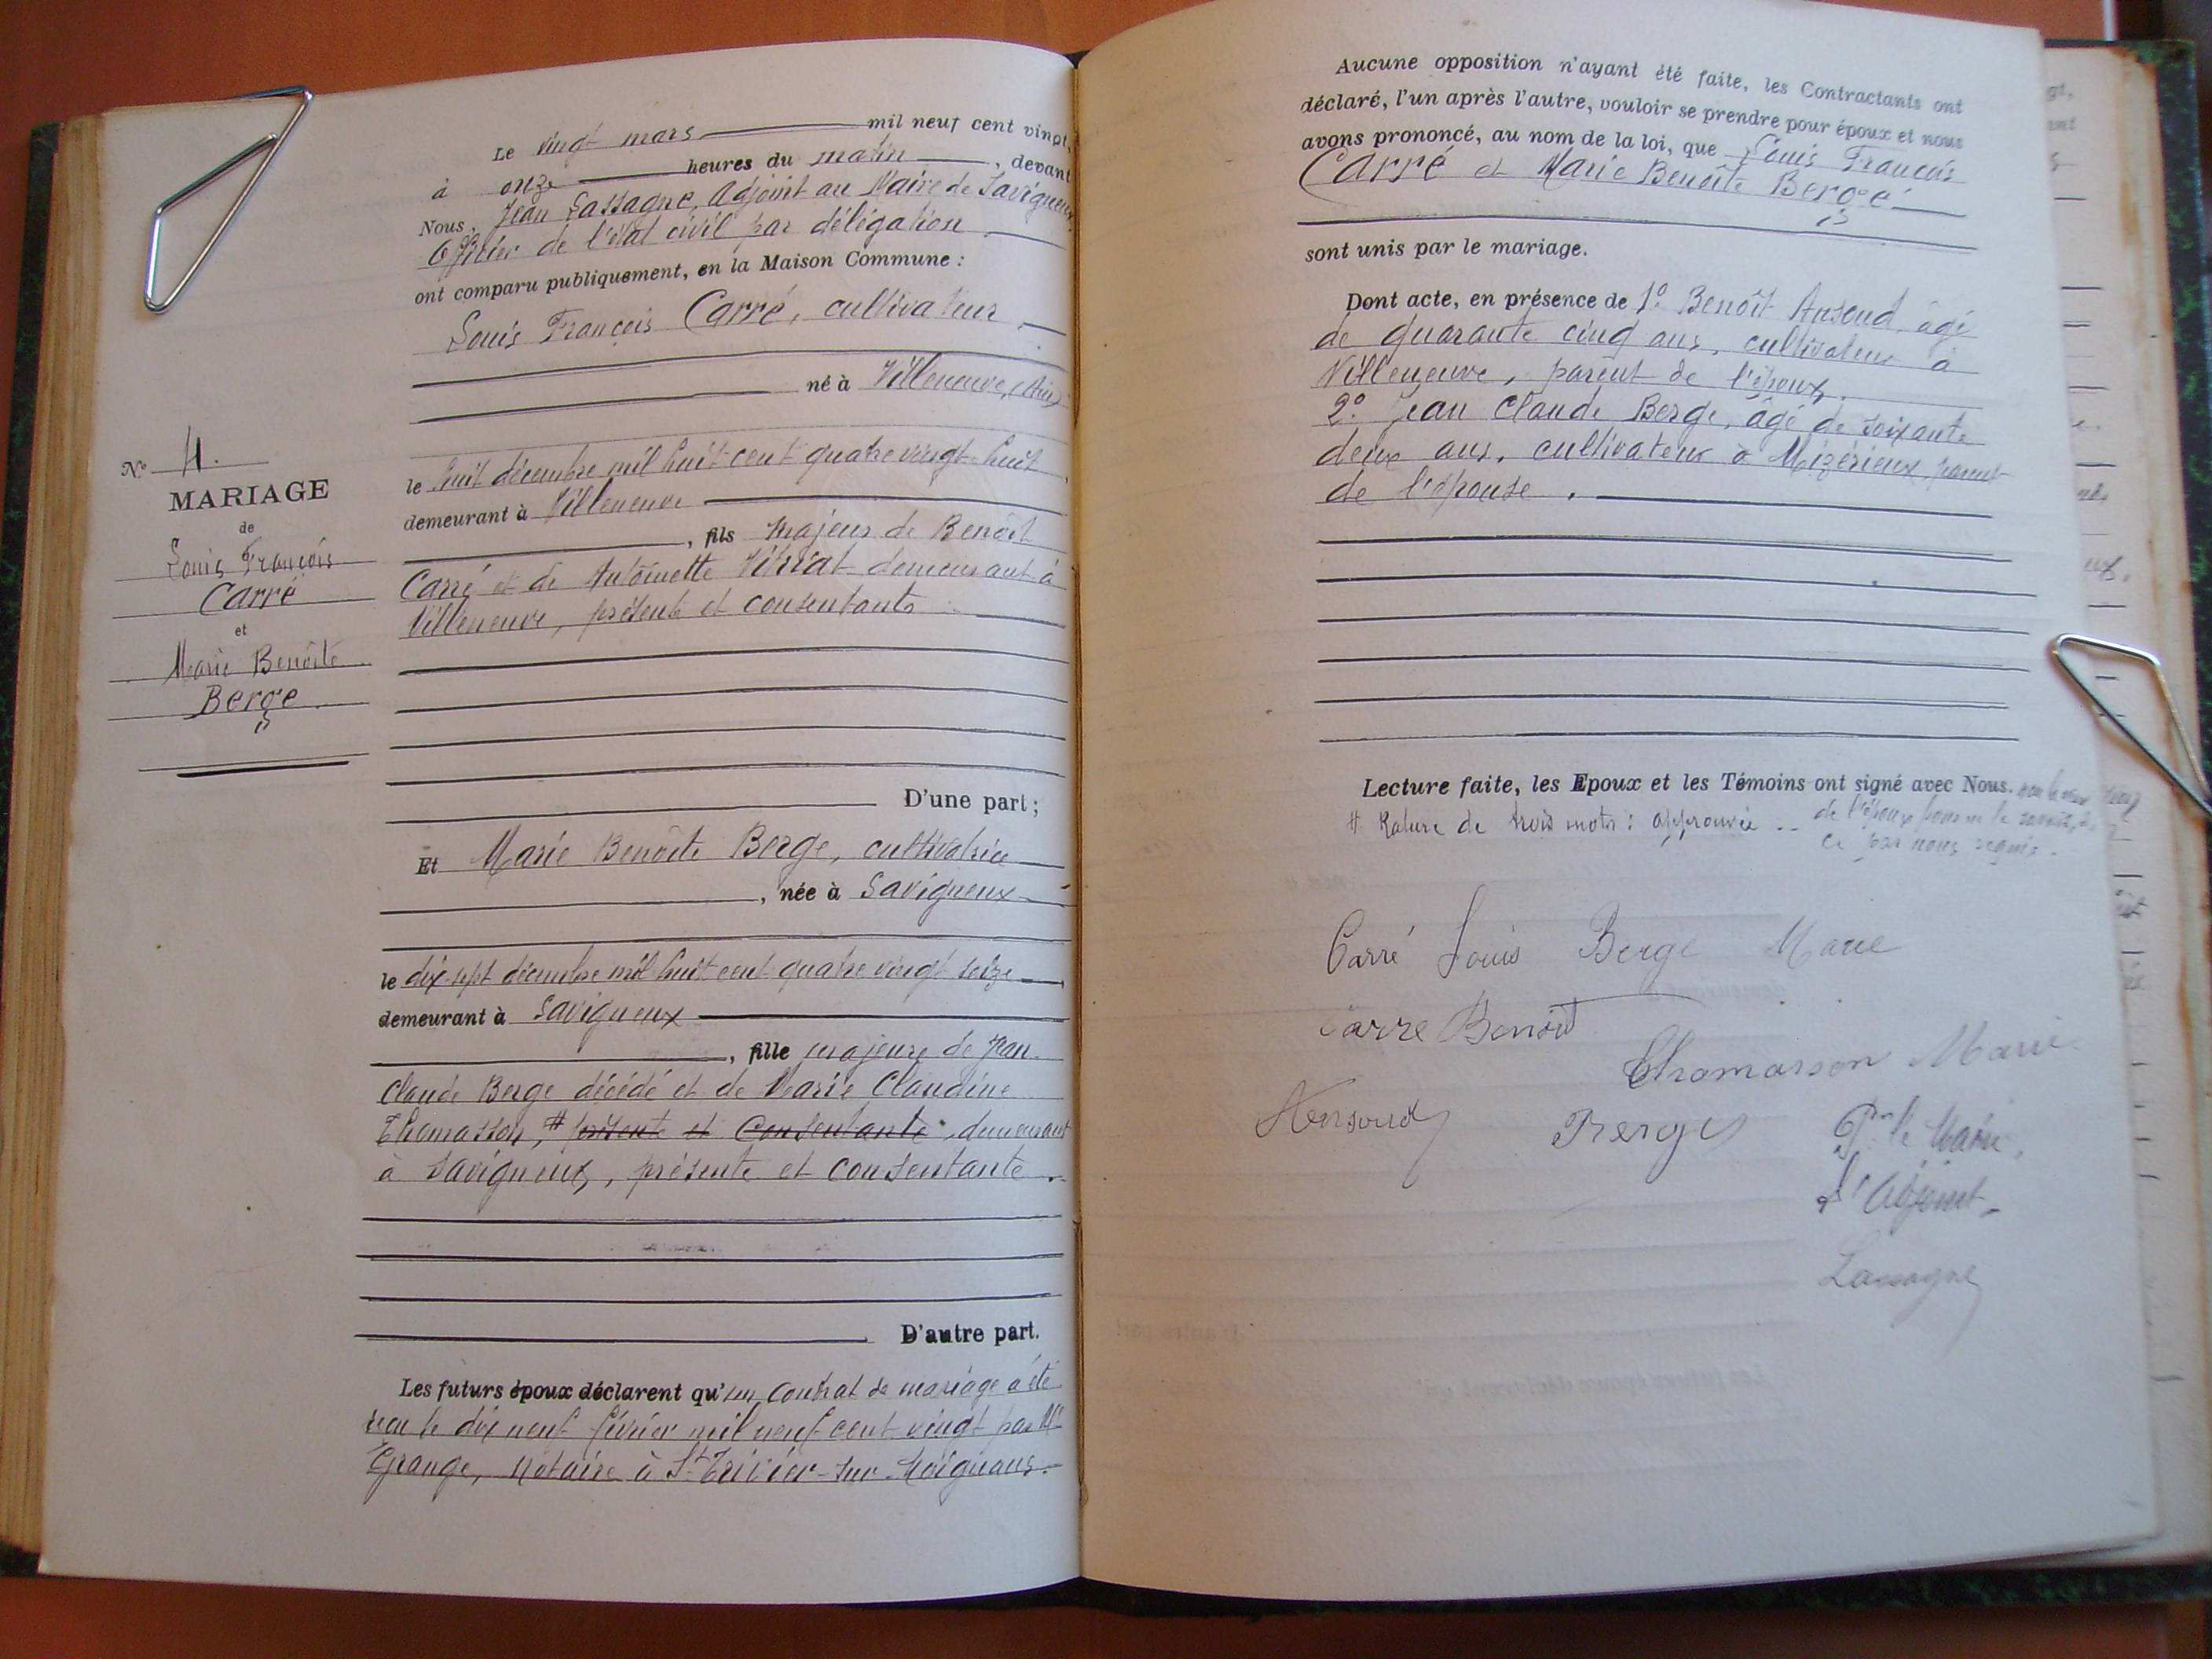 Le vingt mars mil neuf cent vingt,
à onze heures du matin, devant
Nous, Jean Lassagne, Adjoint au Maire de Savigneux
Officier de l'état civil par délégation
ont comparu publiquement, en la Maison Commune :
Louis François Carré, cultivateur
né à Villeneuve, (Ain)
le huit décembre mil huit cent quatre vingt huit,
demeurant à Villeneuve
, fils majeur de Benoît
Carré et de Antoinette demeurant à
Villeneuve, présents et consentants
N° 4.
MARIAGE
de
Louis François
Carré
et
Marie Benoîte
Berge
D'une part ;
Et Marie Benoîte Berge, cultivatrice
, née à Savigneux
le dix-sept décembre mil huit cent quatre vingt seize
demeurant à Savigneux
, fille majeure de Jean
Claude Berge décédé et de Marie Claudine
Thomasson, # présente et consentante, demeurant
à Savigneux, présente et consentante.
D'autre part.
Les futurs époux déclarent qu'un contrat de mariage a été
reçu le dix neuf février mil neuf cent vingt par Me
Grange, Notaire à St Trivier-sur-Moignans.
Aucune opposition n'ayant été faite, les Contractants ont
déclaré, l'un après l'autre, vouloir se prendre pour époux et nous
avons prononcé, au nom de la loi, que Louis François
Carré et Marie Benoîte Berge
sont unis par le mariage.
Dont acte, en présence de 1° Benoît Ansoud, âgé
de quarante cinq ans, cultivateur à
Villeneuve, parent de l'époux,
2° Jean Claude Berge, âgé de soixante
deux ans, cultivateur à Mizérieux, parent
de l'épouse.
Lecture faite, les Epoux et les Témoins ont signé avec Nous.
# Rature de trois mots : approuvée
de l'époux pour ne le savoir, de
ce par nous requis.
Carré Louis Berge Marie
Carre Benoit
Thomasson Marie
Ansoud Berge Pr le Maire,
L'Adjoint
Lassagne